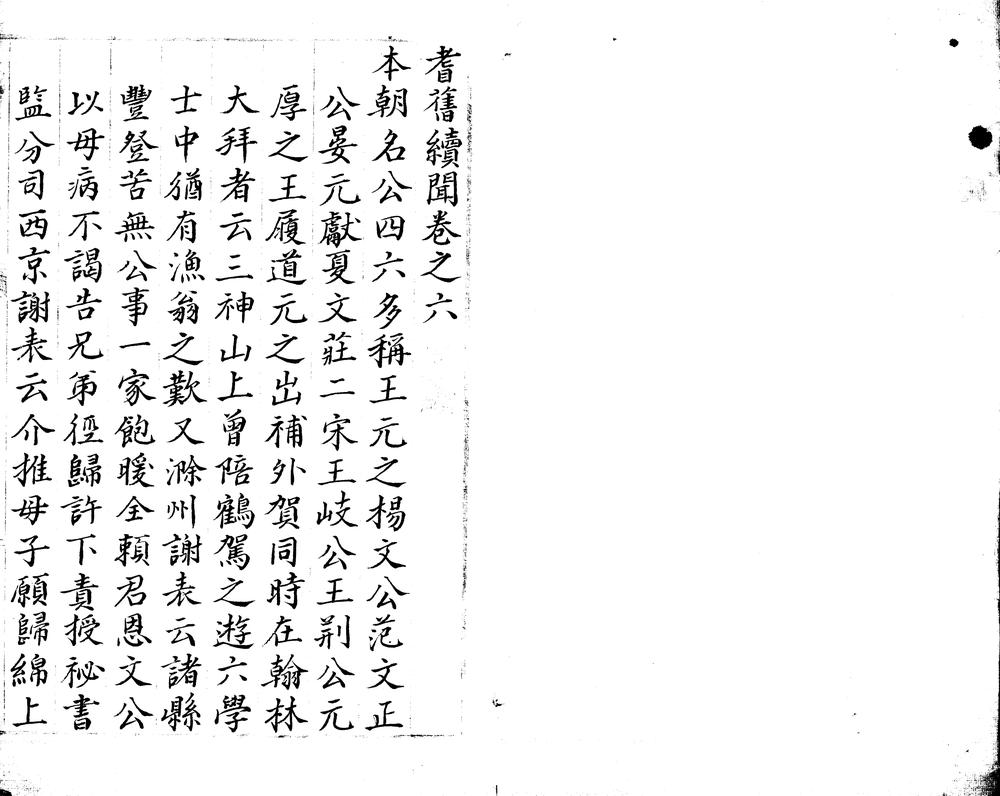 耆舊續聞卷之六
本朝名公四六多稱王元之楊文公范文正
公晏元獻夏文莊二宋王岐公王荆公元
厚之王履道元之出補外賀同時在翰林
大拜者云三神山上曾陪鶴駕之遊六學
士中猶有漁翁之歎又滁州謝表云諸縣
豐登苦無公事一家飽暖全頼君恩文公
以母病不謁告兄弟徑歸許下責授祕書
監分司西京謝表云介推母子願歸綿上